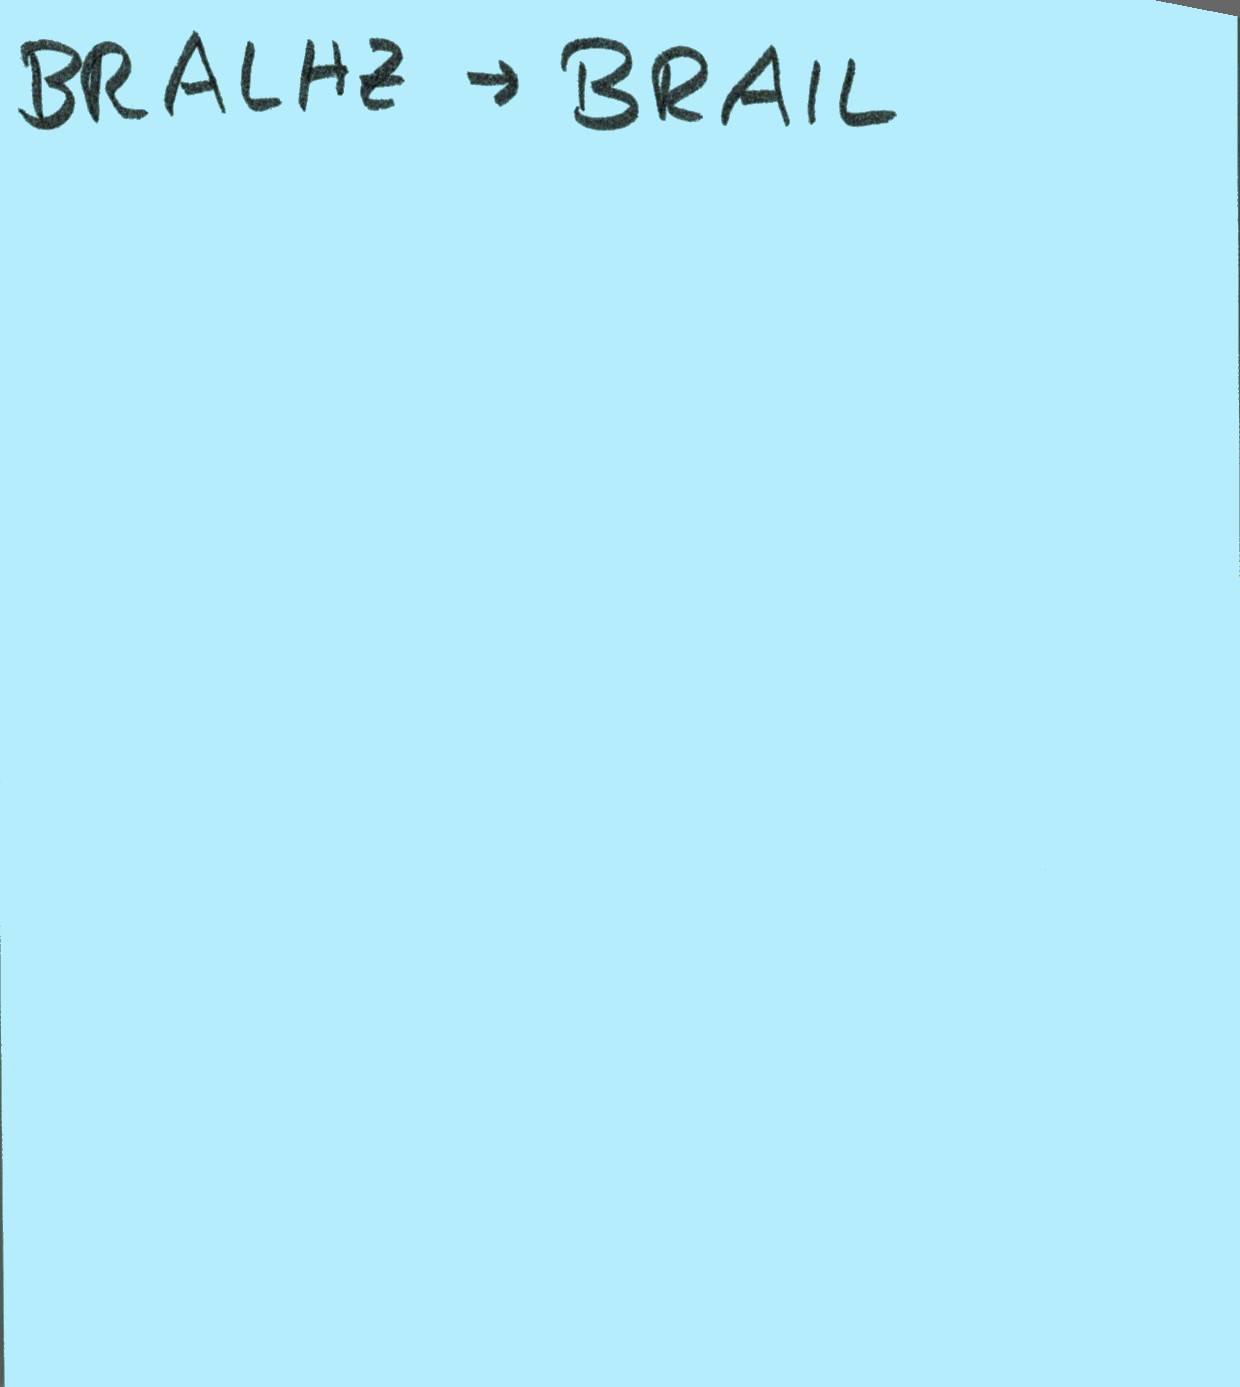 BRALHZ → BRAIL